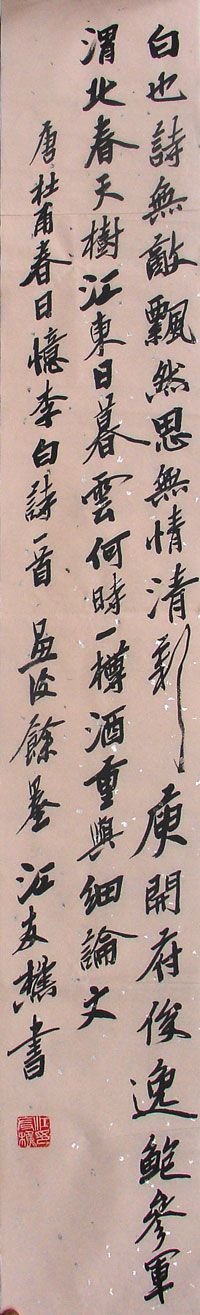 白也詩無敵飄然思無情清新庾開府俊逸鮑參軍
渭北春天樹江東日暮雲何時一樽酒重與細論文
唐杜甫春日憶李白詩一首餘墨江友樵書